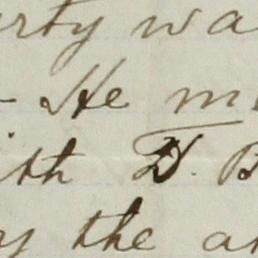 rty wa
- He m
ith D. B
the a